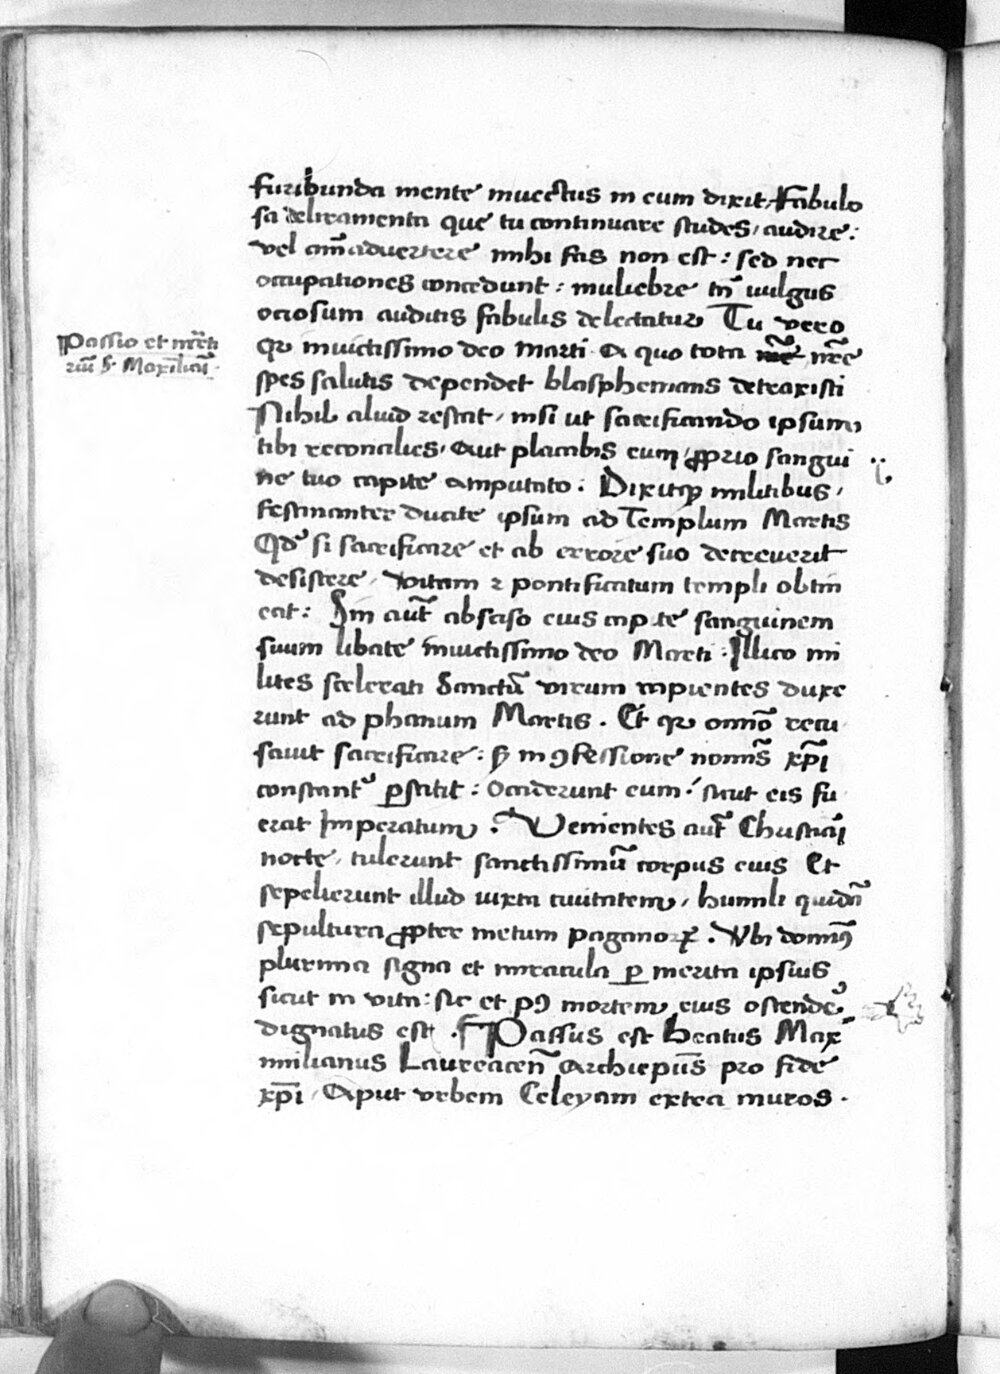 furibunda mente inuectus in eum dixit / Fabulo
sa deliramenta que tu continuare studes / audire :
vel aīaduertere mihi fas non est : sed nec
occupationes concedunt : muliebre tñ uulgus
ociosum auditis fabulis delectatur Tu vero
qr inuictissimo deo Marti a quo tota nr̄e
spes salutis dependet blasphemans detraxisti
Nihil aliud restat / nisi ut sacrificando ipsum
tibi reconcilies / aut placabis eum ꝓprio sangui
ne tuo capite amputato : Dixitqꝫ militibus /
festinanter ducite ipsum ad Templum Martis
Qd si sacrificare et ab errore suo decreuerit
desistere / vitam ⁊ pontificatum templi obtin
eat : Sin aūt absciso eius capite sanguinem
suum libate inuictissimo deo Marti : Illico mi
lites scelerati Sanctū virum rapientes duxe
runt ad phanum Martis . Et qr omīo recu
sauit sacrificare : sꝫ in ꝯfessione nomīs xp̄i
constant̄ ꝑstitit : Occiderunt eum / sicut eis fu
erat Imperatum . Venientes aūt Christiāi
nocte / tulerunt sanctissimū corpus eius Et
sepelierunt illud iuxta ciuitatem / humili quidē
sepultura ꝓpter metum paganoꝝ . Vbi domīꝰ
plurima signa et miracula ꝑ merita ipsius
sicut in vita : sic et pꝰ mortem eius ostende
dignatus est . Passus est Beatus Max
imilianus Laureaceñ Archiep̄us pro fide
xp̄i / Aput vrbem Celeyam extra muros .
Passio et mr̄ti
riū S. Maxīliāi